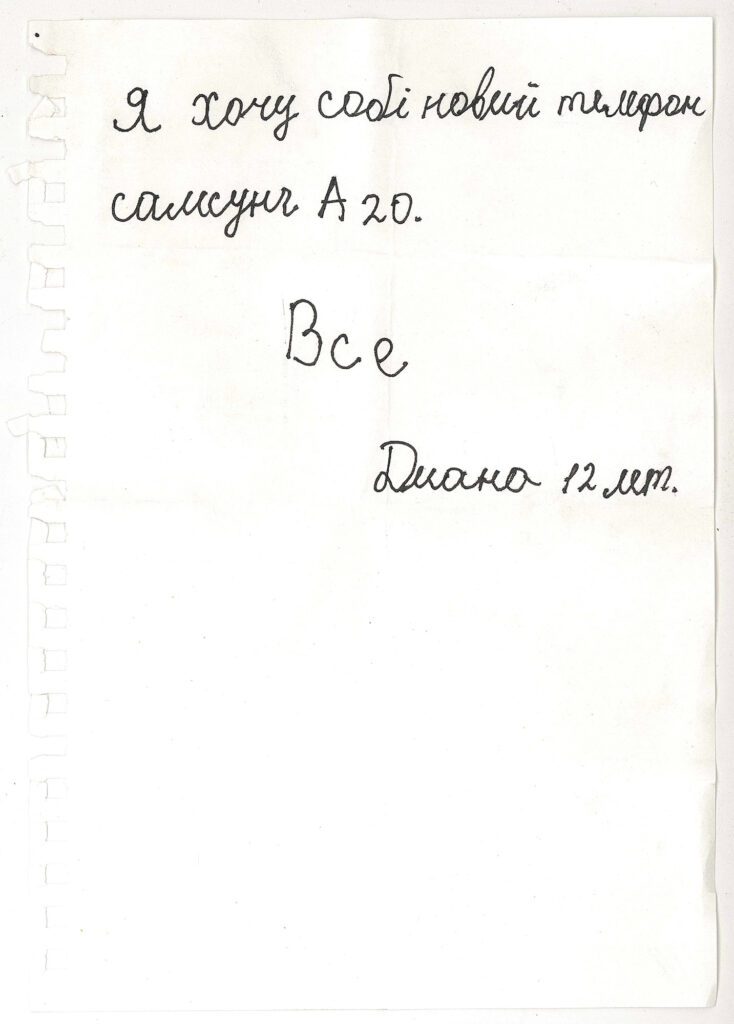 Я хочу собі новий телефон
самсунг А 20.
Все
Диана 12 лет.